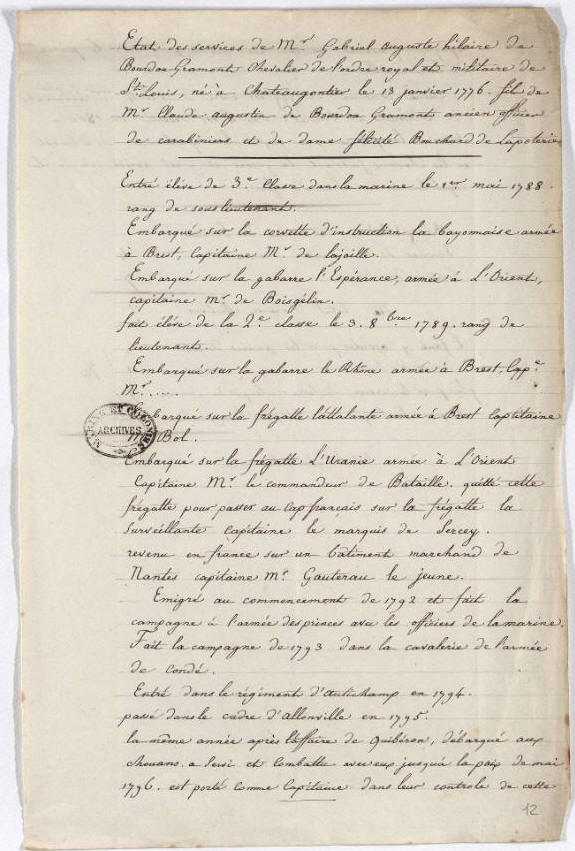 Etat des services de Mr Gabriel auguste hilaire de
Bourdon Gramont Chevalier de l'ordre royal et militaire de
St Louis, né à Chateaugontier le 13 janvier 1776. fil de
Mr Claude augustin de Bourdon Gramont ancien officier
de carabiniers et de dame félicité Bouchard de Lapoterie
Entré élève de 3e Classe dans la marine le 1er mai 1788.
rang de souslieutenant.
Embarqué sur la corvette d'instruction la bayonnaise armée
à Brest, Capitaine Mr de lajoille.
Embarqué sur la gabarre l'Espérance, armée à L'Orient,
capitaine Mr de Boisgélin.
fait élève de la 2e classe le 3. 8bre 1789. rang de
lieutenant.
Embarqué sur la gabarre le Rhône armée à Brest, Cape
Mr .....
Embarqué sur la frégatte l'attalante armée à Brest capitaine
Mr Bol.
Embarqué sur la frégatte L'Uranie armée à L'Orient
Capitaine Mr le commandeur de Bataille. quitté cette
frégatte pour passer au Cap français sur la frégatte la
Surveillante Capitaine le marquis de Sercey.
revenu en france sur un bâtiment marchand de
Nantes capitaine Mr Gauterau le jeune.
Emigré au commencement de 1792 et fait la
campagne à l'armée des princes avec les officiers de la marine.
Fait la campagne de 1793 dans la cavalerie de l'armée
de Condé.
Entré dans le régiment d'autichamp en 1794.
passé dans le cadre d'allonville en 1795.
la même année après l'affaire de Quibéron, débarqué aux
chouans. a servi et combattu avec eux jusqu'à la paix de mai
1796. est porté comme Capitaine dans leur controle de cette
MARINE ET COLONIES
ARCHIVES
12